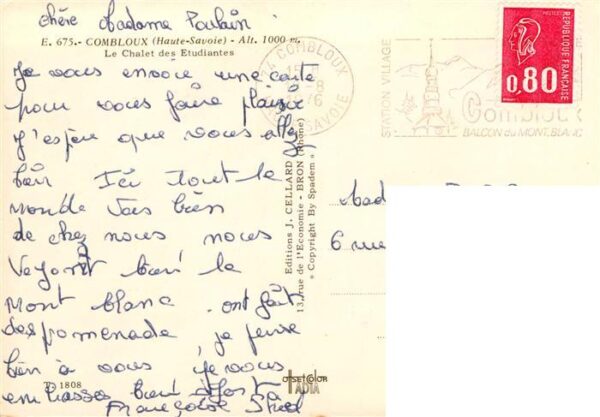 chère Madame Poulain
E. 675.- COMBLOUX (Haute-Savoie) - Alt. 1000 m.
Le Chalet des Étudiantes
Je vous envoie une carte
pour vous faire plaisir
J'espère que vous allez
bien Ici tout le
monde vas bien
de chez nous nous
Voyont bien le
Mont blanc. ont fait
des promenade, je pense
bien à vous je vous
embrasse bien fort
Françoise
T. 1808
Editions J. CELLARD
13, rue de l'Economie - BRON (Rhône)
« Copyright By Spadem »
OFFSET COLOR
IADIA
74 COMBLOUX
HTE SAVOIE
STATION VILLAGE
Combloux
BALCON DU MONT.BLANC
POSTES
0,80
REPUBLIQUE FRANÇAISE
Mad
6 rue